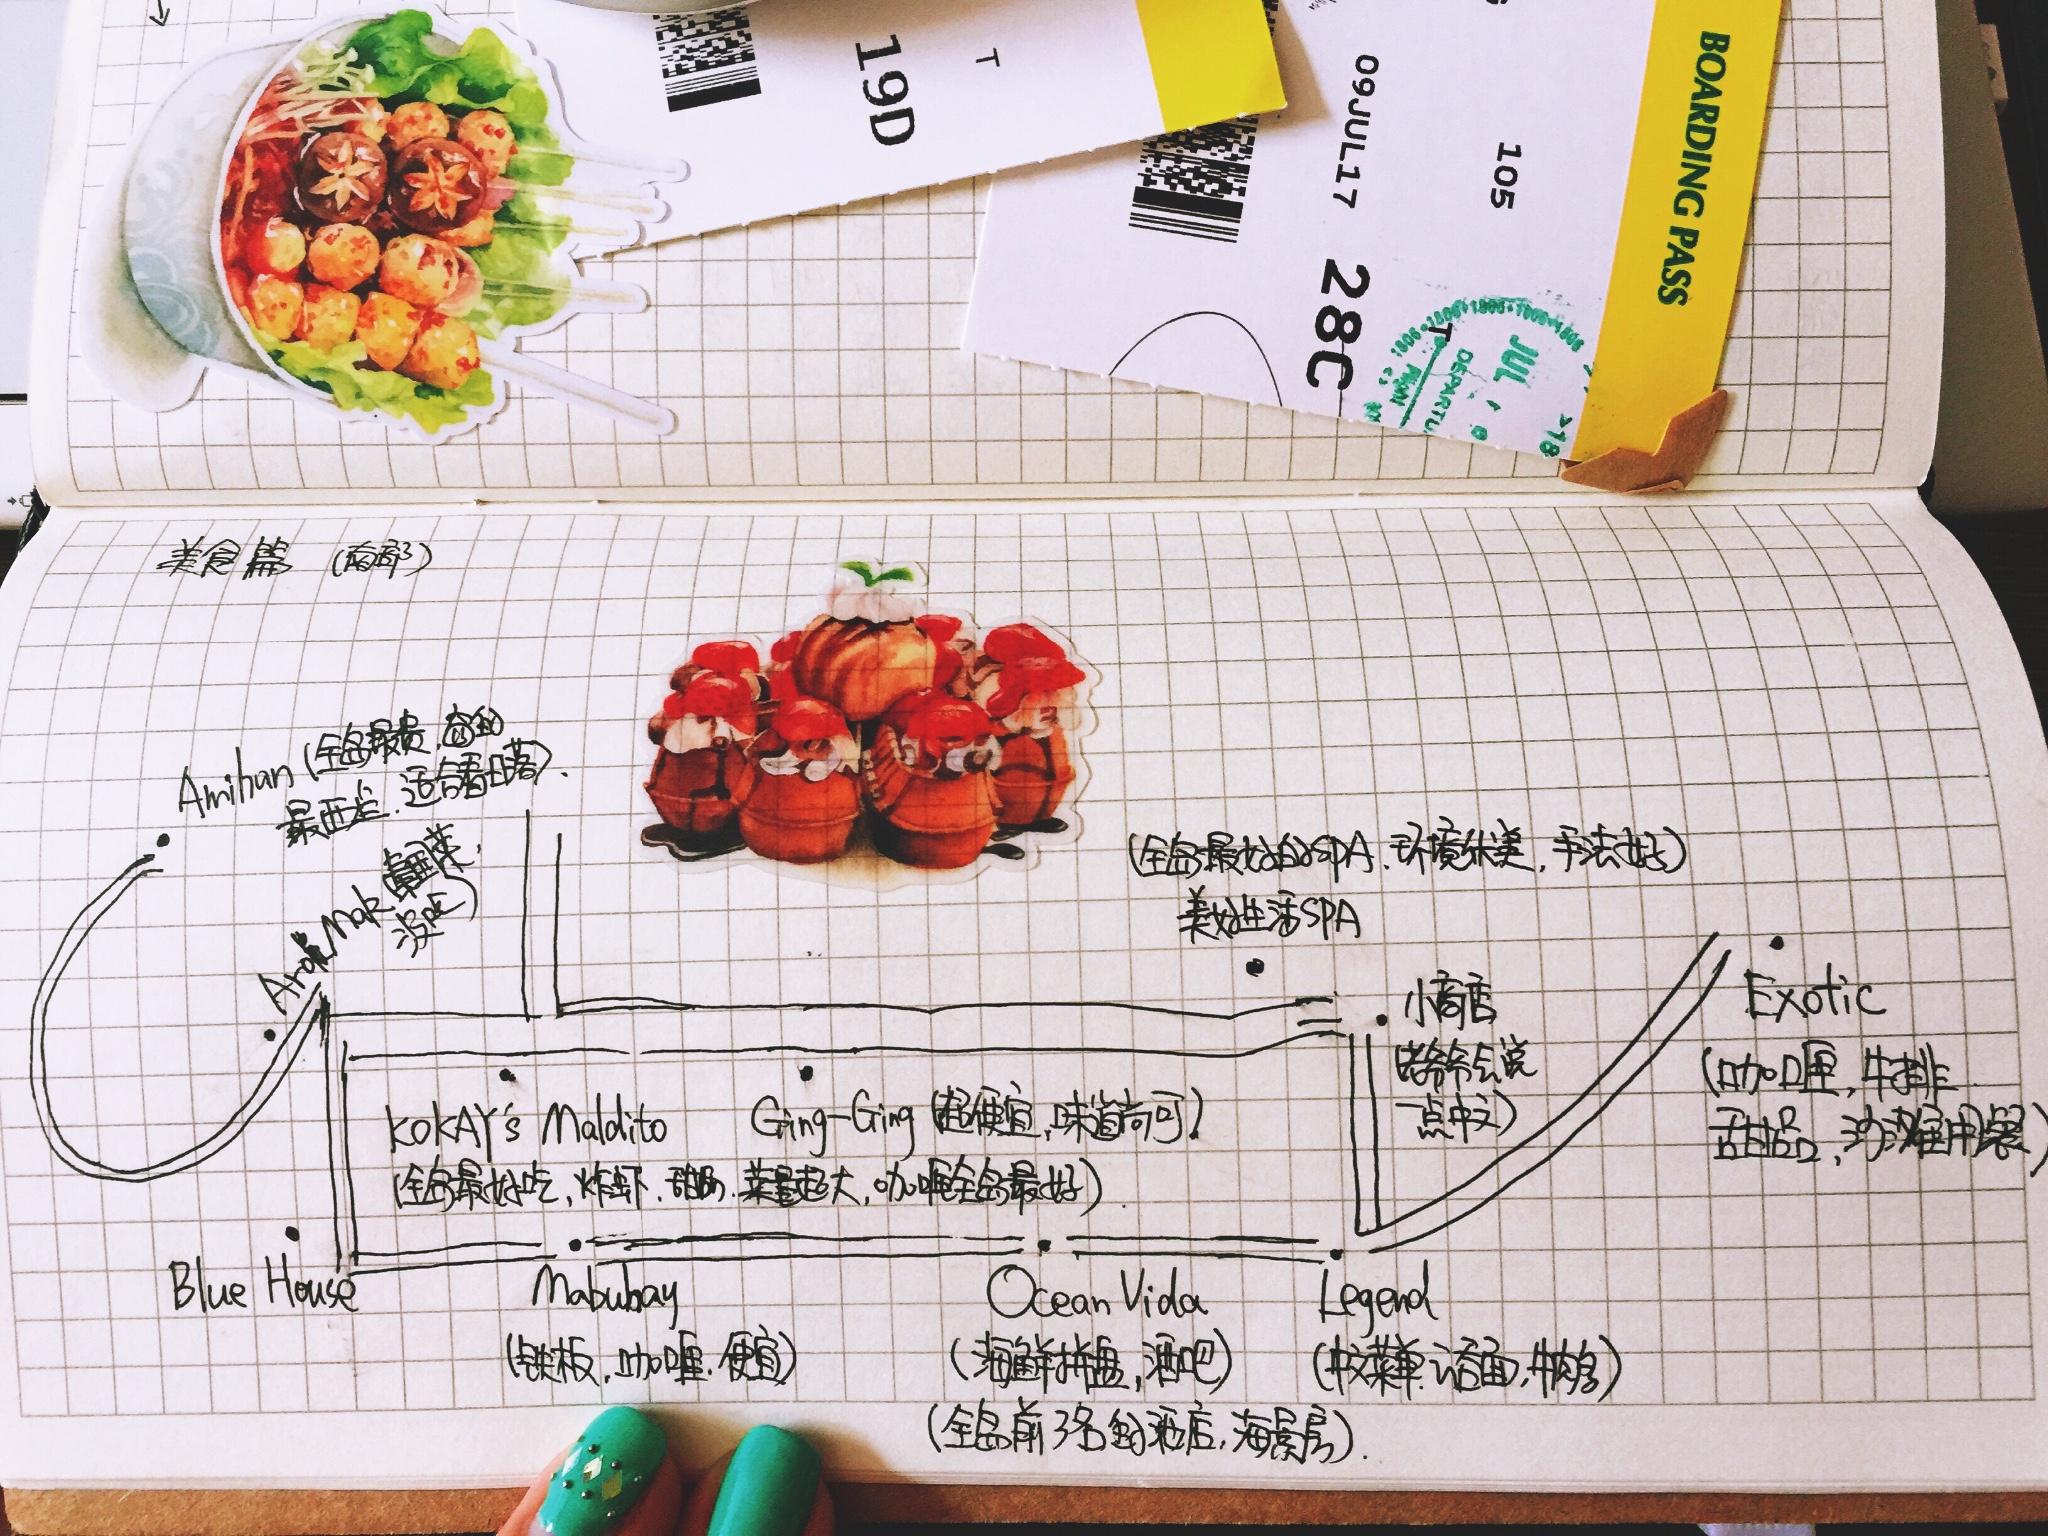 19D
T
09JUL17
105
28C
BOARDING PASS
JUL
DEPARTU
美食篇 (南部)
Amihan (全岛最贵,
最西发,适合看日落).
Arok Mak
(全岛最好的SPA,环境优美,手法好)
美好生活SPA
小商店
(老爷爷会说
一点中文)
Exotic
(咖喱,牛排
甜品,沙滩用餐)
KOKAY's Maldito
(全岛最好吃,炸虾,甜品,菜量超大,咖喱全岛最好).
Ging-Ging (超便宜,味道尚可)
Blue House
Mabubay
(铁板,咖喱,便宜)
Ocean Vida
(海鲜拼盘,酒吧)
(全岛前3名的酒店,海景房).
Legend
(中文菜单,